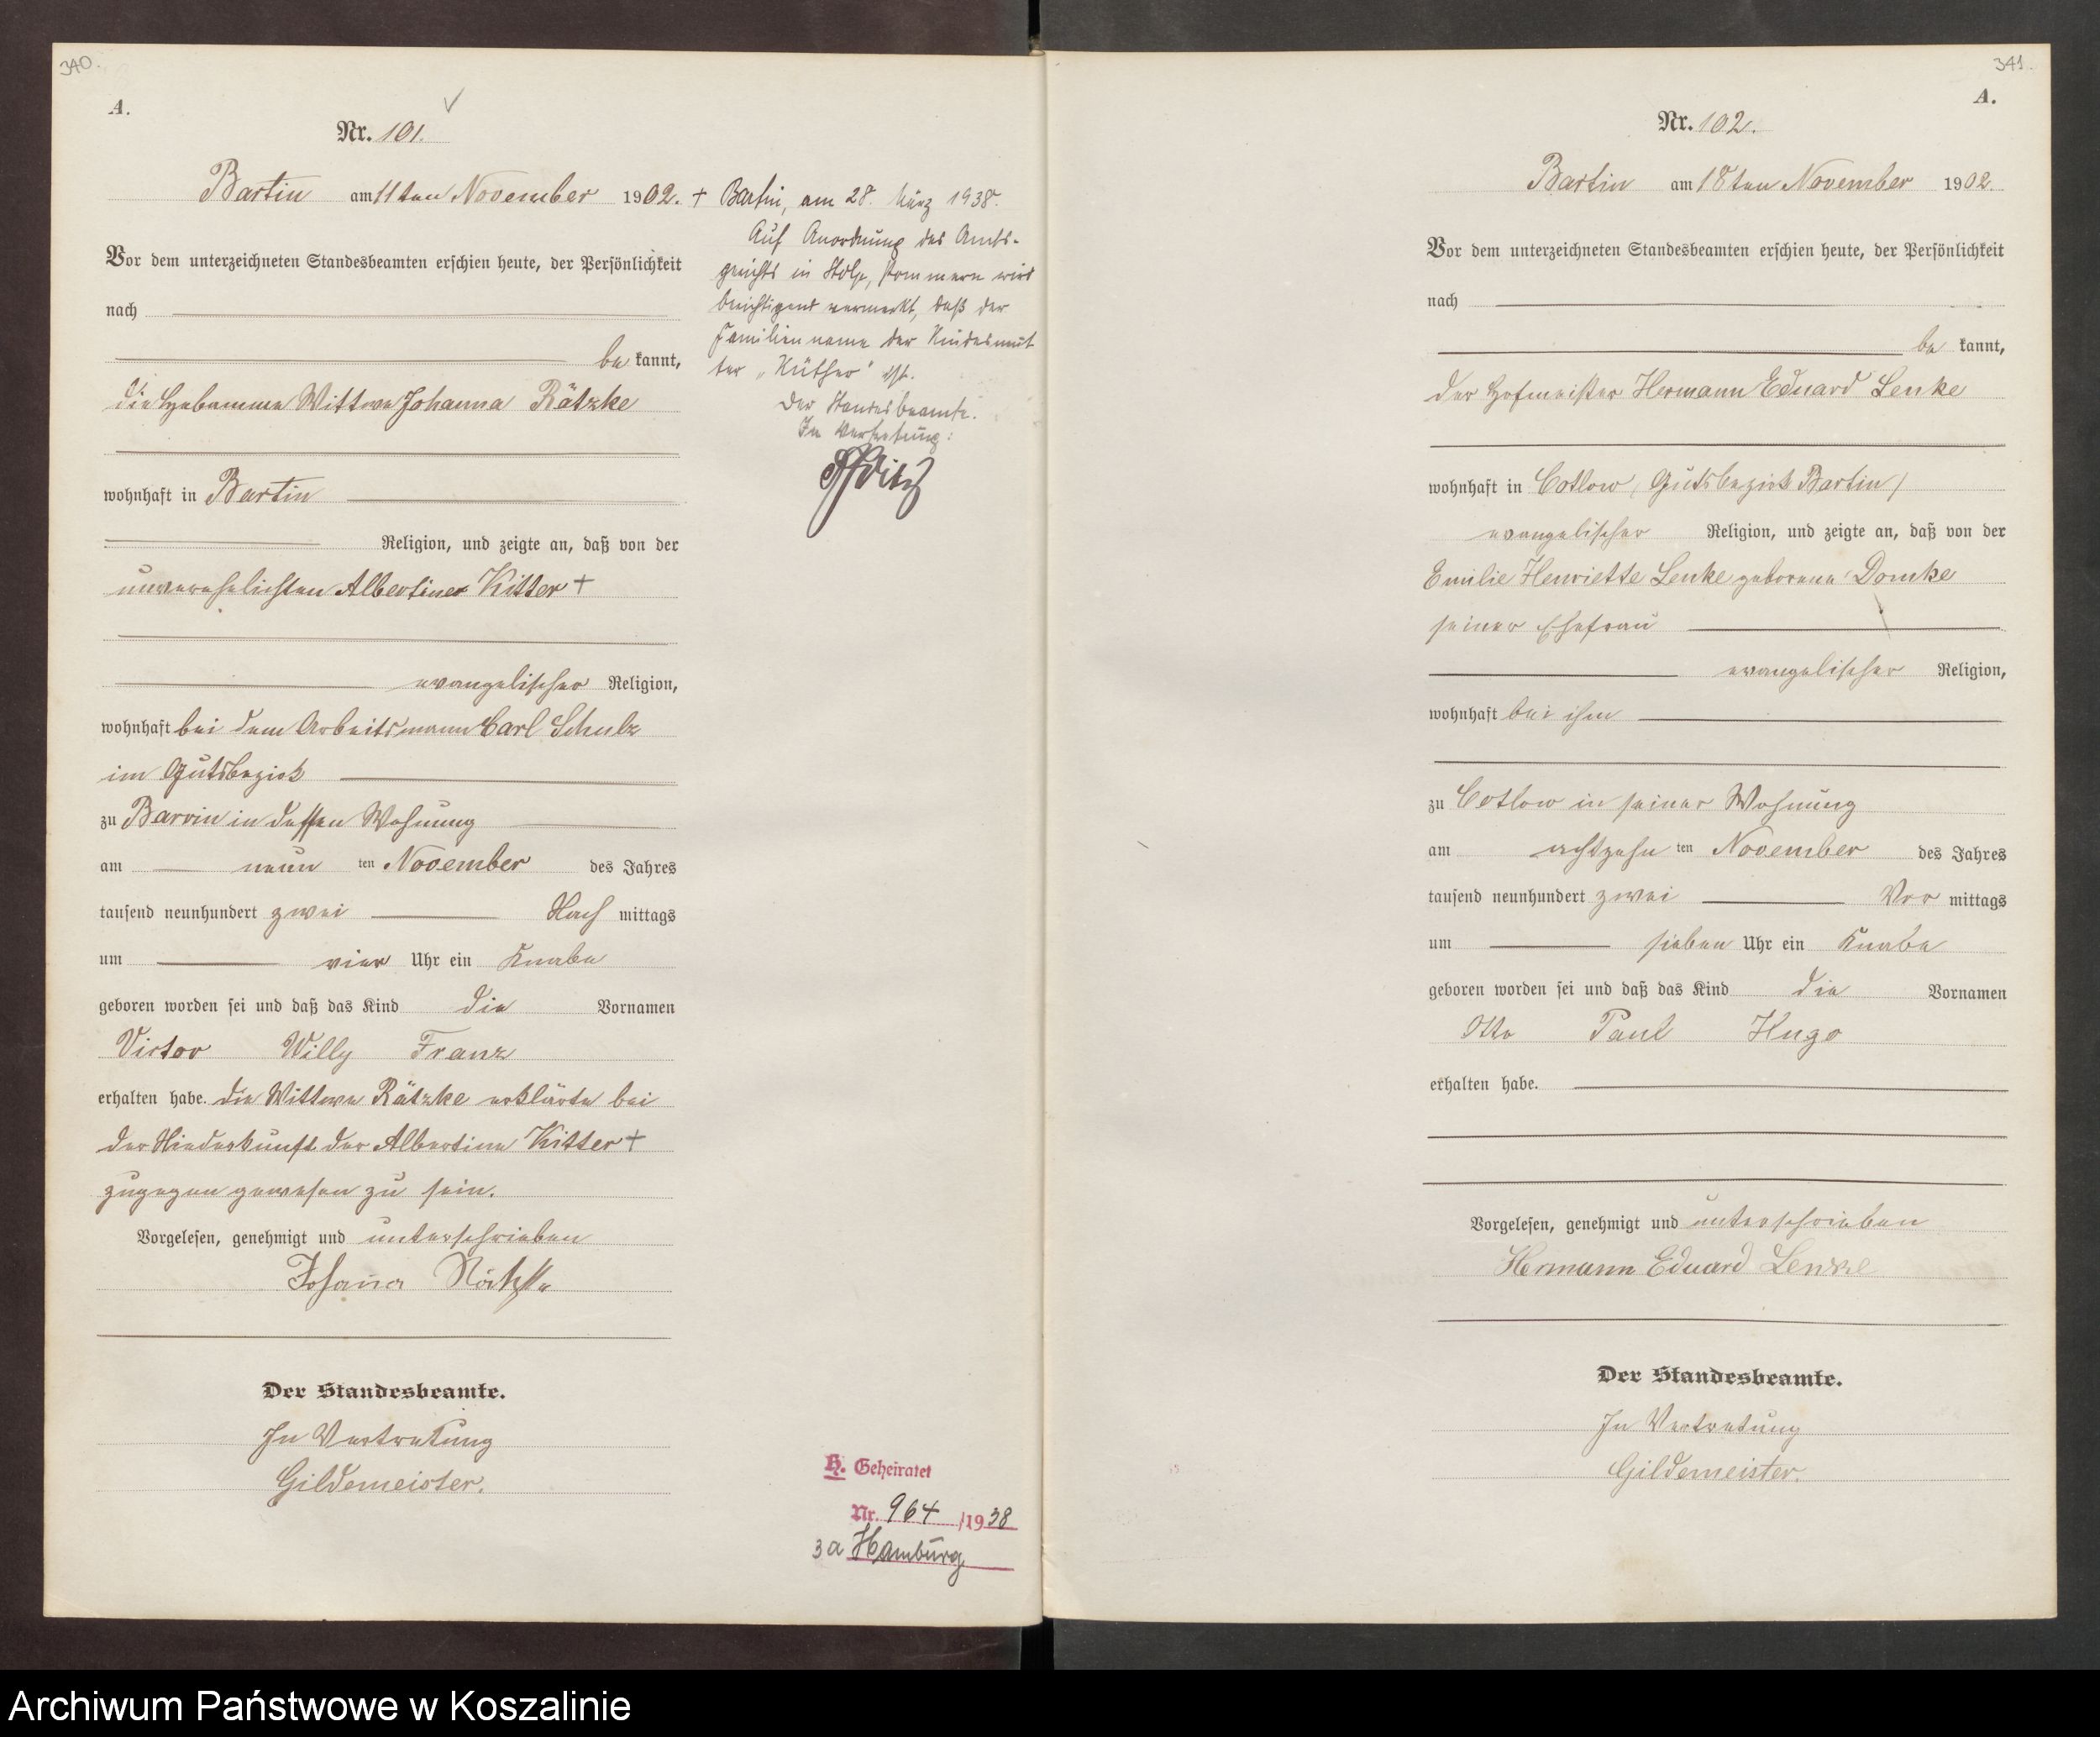 340.
A.
Nr. 101.
Bartin am 11ten November 1902. +
Vor dem unterzeichneten Standesbeamten erschien heute, der Persönlichkeit
nach
be kannt,
die Hebamme Wittwe Johanna Rätzke
wohnhaft in Bartin
Religion, und zeigte an, daß von der
unverehelichten Albertine Kitter +
evangelischer Religion,
wohnhaft bei dem Arbeitsmann Carl Schulz
im Gutsbezirk
zu Barvin in dessen Wohnung
am neun ten November des Jahres
tausend neunhundert zwei Nach mittags
um vier Uhr ein Knabe
geboren worden sei und daß das Kind die Vornamen
Victor Willy Franz
erhalten habe. die Wittwe Rätzke erklärte bei
der Niederkunft der Albertine Kitter +
zugegen gewesen zu sein.
Vorgelesen, genehmigt und unterschrieben
Johanna Rätzke
Der Standesbeamte.
In Vertretung
Gildemeister.
Bartin, am 28. März 1938.
Auf Anordnung des Amts-
gerichts in Stolp, Pommern wird
berichtigend vermerkt, daß der
Familienname der Kindesmut
ter „Küther" ist.
Der Standesbeamte.
In Vertretung:
H. Geheiratet
Nr. 964 /1938
3a Hamburg
341.
A.
Nr. 102.
Bartin am 18ten November 1902.
Vor dem unterzeichneten Standesbeamten erschien heute, der Persönlichkeit
nach
be kannt,
der Hofmeister Hermann Eduard Lenke
wohnhaft in Cotlow (Gutsbezirk Bartin)
evangelischer Religion, und zeigte an, daß von der
Emilie Henriette Lenke geborene Domke
seiner Ehefrau
evangelischer Religion,
wohnhaft bei ihm
zu Cotlow in seiner Wohnung
am achtzehn ten November des Jahres
tausend neunhundert zwei Vor mittags
um sieben Uhr ein Knabe
geboren worden sei und daß das Kind die Vornamen
Otto Paul Hugo
erhalten habe.
Vorgelesen, genehmigt und unterschrieben
Hermann Eduard Lenke
Der Standesbeamte.
In Vertretung
Gildemeister.
Archiwum Państwowe w Koszalinie